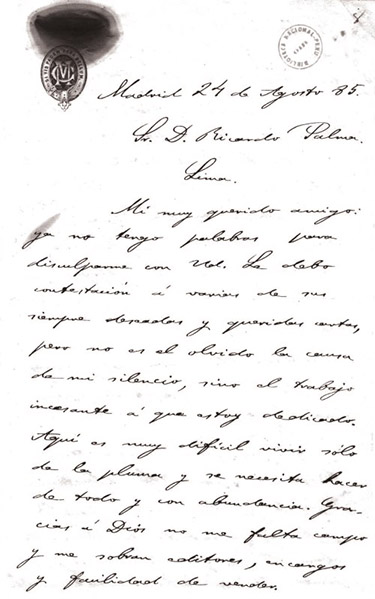 BIBLIOTECA NACIONAL-PERU
Madrid 24 de Agosto 85.
Sr. D. Ricardo Palma.
Lima.
Mi muy querido amigo:
ya no tengo palabras para
disculparme con Ud. Le debo
contestación á varias de sus
siempre deseadas y queridas cartas,
pero no es el olvido la causa
de mi silencio, sino el trabajo
incesante á que estoy dedicado.
Aquí es muy difícil vivir sólo
de la pluma y se necesita hacer
de todo y con abundancia. Gra-
cias á Dios no me falta campo
y me sobran editores, encargos
y facilidad de vender.